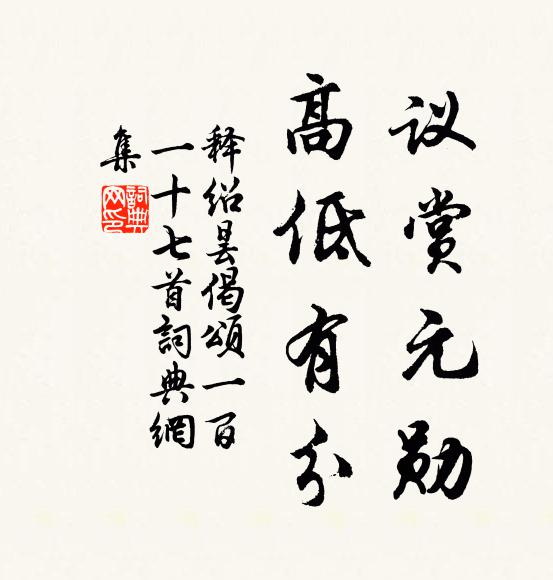 议赏元勋
高低有分
释绍昙偈颂一百
一十七首詞典網
集
詞典网印